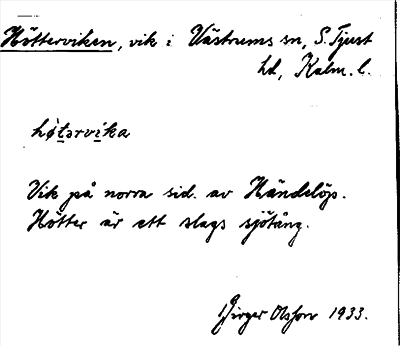 Hötterviken, vik i Västrums sn, S. Tjust
hd, Kalm. l.
hø̀tərvika
Vik på norra sid. av Händelöp.
Hötter är ett slags sjötång.
Birger Olsson 1933.